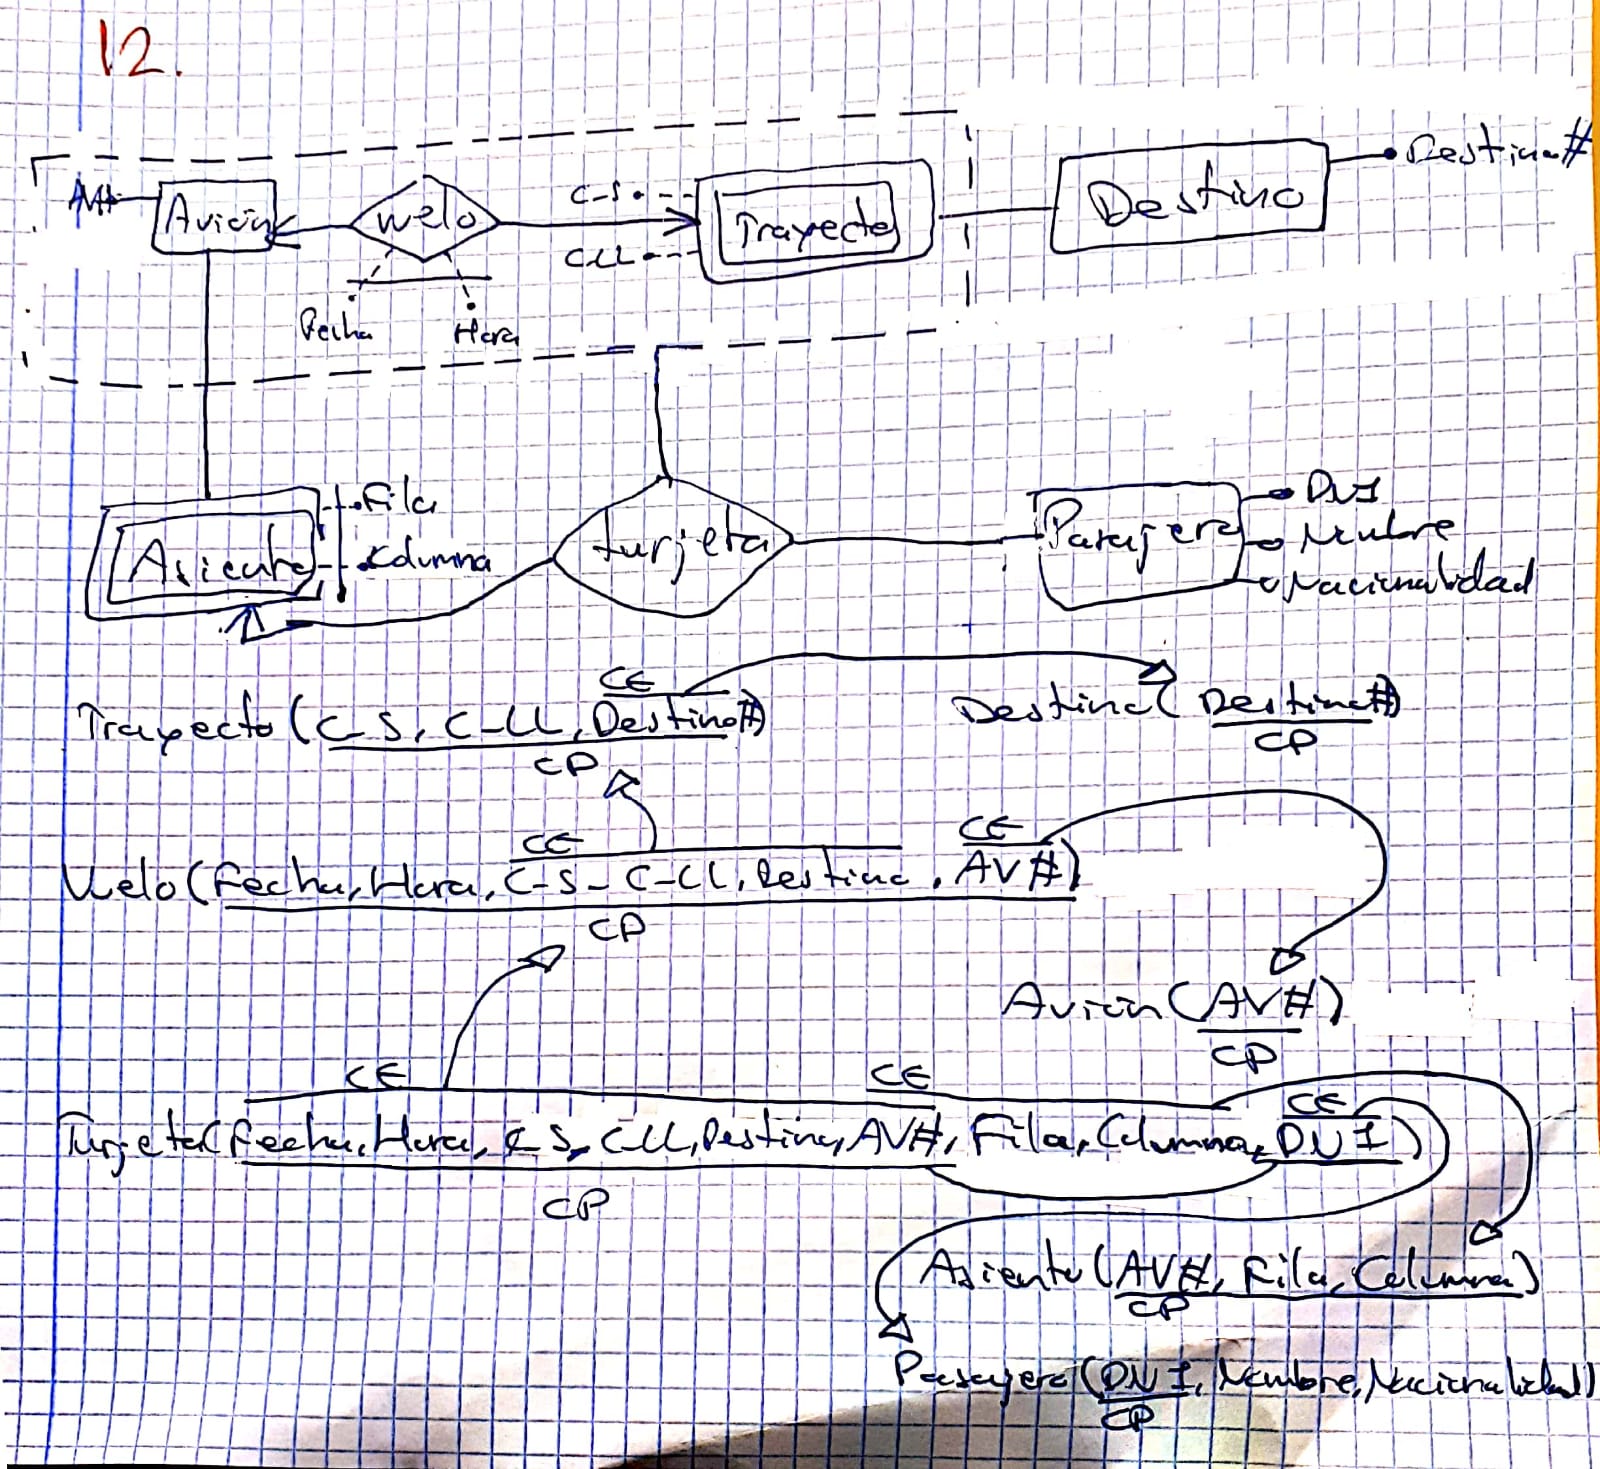 12.
Destino#
AV#
Avión
Vuelo
C-S
C-LL
Trayecto
Destino
Fecha
Hora
Fila
Columna
Asiento
tarjeta
Pasajero
DNI
Nombre
Nacionalidad
CE
Trayecto (C-S, C-LL, Destino#)
CP
Destino( Destino#)
CP
CE
CE
Vuelo (Fecha, Hora, C-S - C-LL, Destino, AV#)
CP
Avión (AV#)
CP
CE
CE
CE
Tarjeta( Fecha, Hora, C-S, C-LL, Destino, AV#, Fila, Columna, DNI)
CP
Asiento (AV#, Fila, Columna)
CP
Pasajero (DNI, Nombre, Nacionalidad)
CP